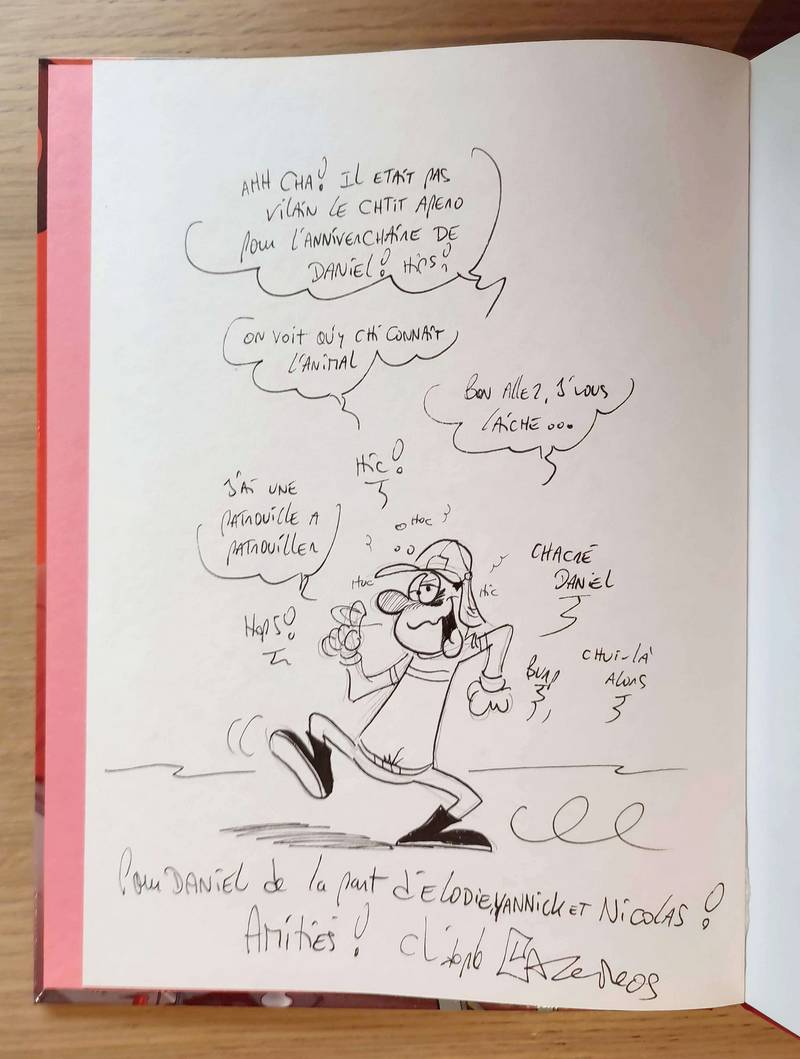 AHH CHA! IL ETAIT PAS
VILAIN LE CHTIT APERO
POUR L'ANNIVERCHAIRE DE
DANIEL! HIPS!
ON VOIT QU'Y CHI CONNAÎT
L'ANIMAL
BON ALLEZ, J'VOUS
LAICHE...
HIC!
J'AI UNE
PATROUILLE A
PATROUILLER
HOC
HUC
HIC
HOPS!
CHACRÉ
DANIEL
BURP
CHUI-LÀ
ALORS
Pour DANIEL de la part d'ELODIE, YANNICK ET NICOLAS!
AMITIÉS!